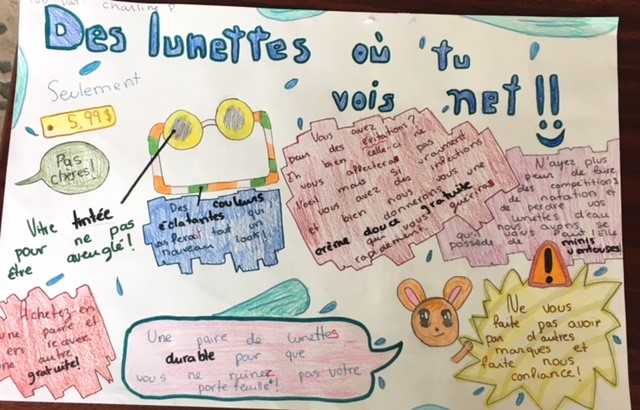 par Charline P.
Des lunettes où tu
vois net!!
Seulement
5,99$
Pas
chères!
Vitre tintée
pour ne pas
être aveuglé!
Des couleurs
éclatantes qui
tout un
nouveau look!
Vous avez
peur des irritations?
Eh bien celle-ci ne
vous affectera vraiment
mais si
vous avez des infections
et bien nous vous
donnerions une
crème douce gratuite
que vous guérirus
rapidement!
N'ayez plus
peur de faire
des compétitions
de natation et
de perdre vos
lunettes d'eau
nous avons se
qu'il vous faut! Elle
possède de minis
ventouses
Achetez-en
une paire et
en recevez
une autre
gratuite!
Une paire de lunettes
durable pour que
vous ne ruinez pas votre
portefeuille!
!
Ne vous
faite pas avoir
par d'autres
marques et
faite nous
confiance!